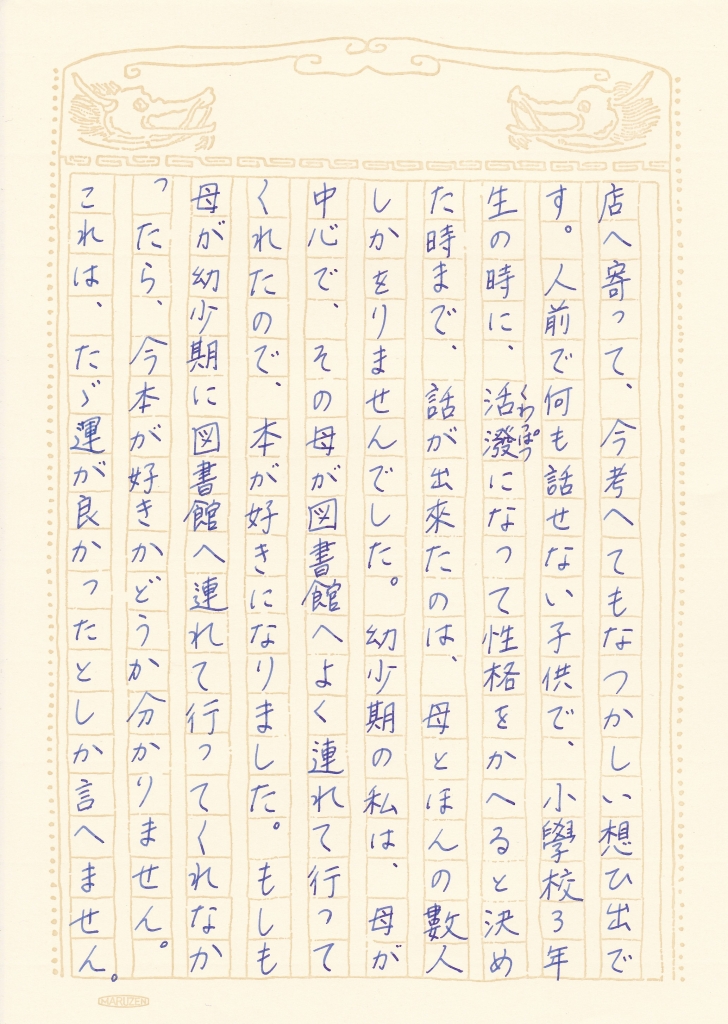 店へ寄って、今考へてもなつかしい想ひ出で
す。人前で何も話せない子供で、小學校3年
生の時に、活潑になって性格をかへると決め
くわっぱつ
た時まで、話が出來たのは、母とほんの數人
しかをりませんでした。幼少期の私は、母が
中心で、その母が図書館へよく連れて行って
くれたので、本が好きになりました。もしも
母が幼少期に図書館へ連れて行ってくれなか
ったら、今本が好きかどうか分かりません。
これは、たゞ運が良かったとしか言へません。
MARUZEN